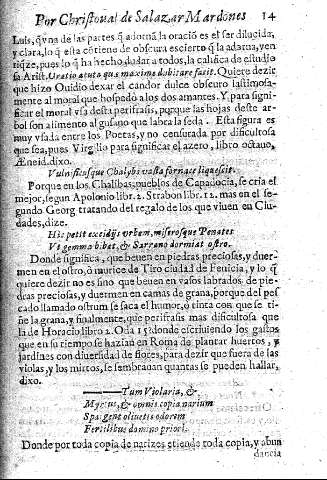 Por Christoual de Salazar Mardones 14
Luis, q̃ vna de las partes q̃ adornã la oració es el ser dilucida,
y clara, lo q̃ esta cõtiene de obscura es cierto q̃ la adarua, y en
riq̃ze, pues lo q̃ ha hecho dudar a todos, la califica de estudio
sa Arist. Oratio acuta quæ maxime dubitare facit. Quiere dezir
que hizo Ouidio dexar el candor dulce obscuro lastimosa-
mente al moral que hospedò a los dos amantes. Y para signi-
ficar el moral vsa desta perifrasis, porque las hojas deste ar-
bol son alimento al gusano que labra la seda. Esta figura es
muy vsada entre los Poetas, y no censurada por dificultosa
que sea, pues Virgilio para significar el azero, libro octauo,
Æneid. dixo.
Vulnificusque Chalybs vasta fornace liquescit.
Porque en los Chalibas, pueblos de Capadocia, se cria el
mejor, segun Apolonio libr. 2. Strabon libr. 12. mas en el se-
gundo Georg. tratando del regalo de los que viuen en Ciu-
dades, dize.
Hic petit excidijs vrbem, miserosque Penates
Vt gemma bibat, & Sarrano dormiat ostro.
Donde significa, que beuen en piedras preciosas, y duer-
men en el ostro, ò murice de Tiro ciudad de Fenicia, y lo q̃
quiere dezir no es sino que beuen en vasos labrados de pie-
dras preciosas, y duermen en camas de grana, porque del pes-
cado llamado ostrum se saca el humor, ò tinta con que se ti-
ñe la grana, y finalmente, que perifrasis mas dificultosa que
la de Horacio libro 2. Oda 15. donde escriuiendo los gastos
que en su tiempo se hazian en Roma de plantar huertos, y
jardines con diuersidad de flores, para dezir que fuera de las
violas, y los mirtos, se sembrauan quantas se pueden hallar,
dixo.
Tum Violaria, &
Myrtus, & omnis copia narium
Spargent oliuetis odorem
Fertilibus domino priori.
Donde por toda copia de narizes etiende toda copia, y abun
dancia